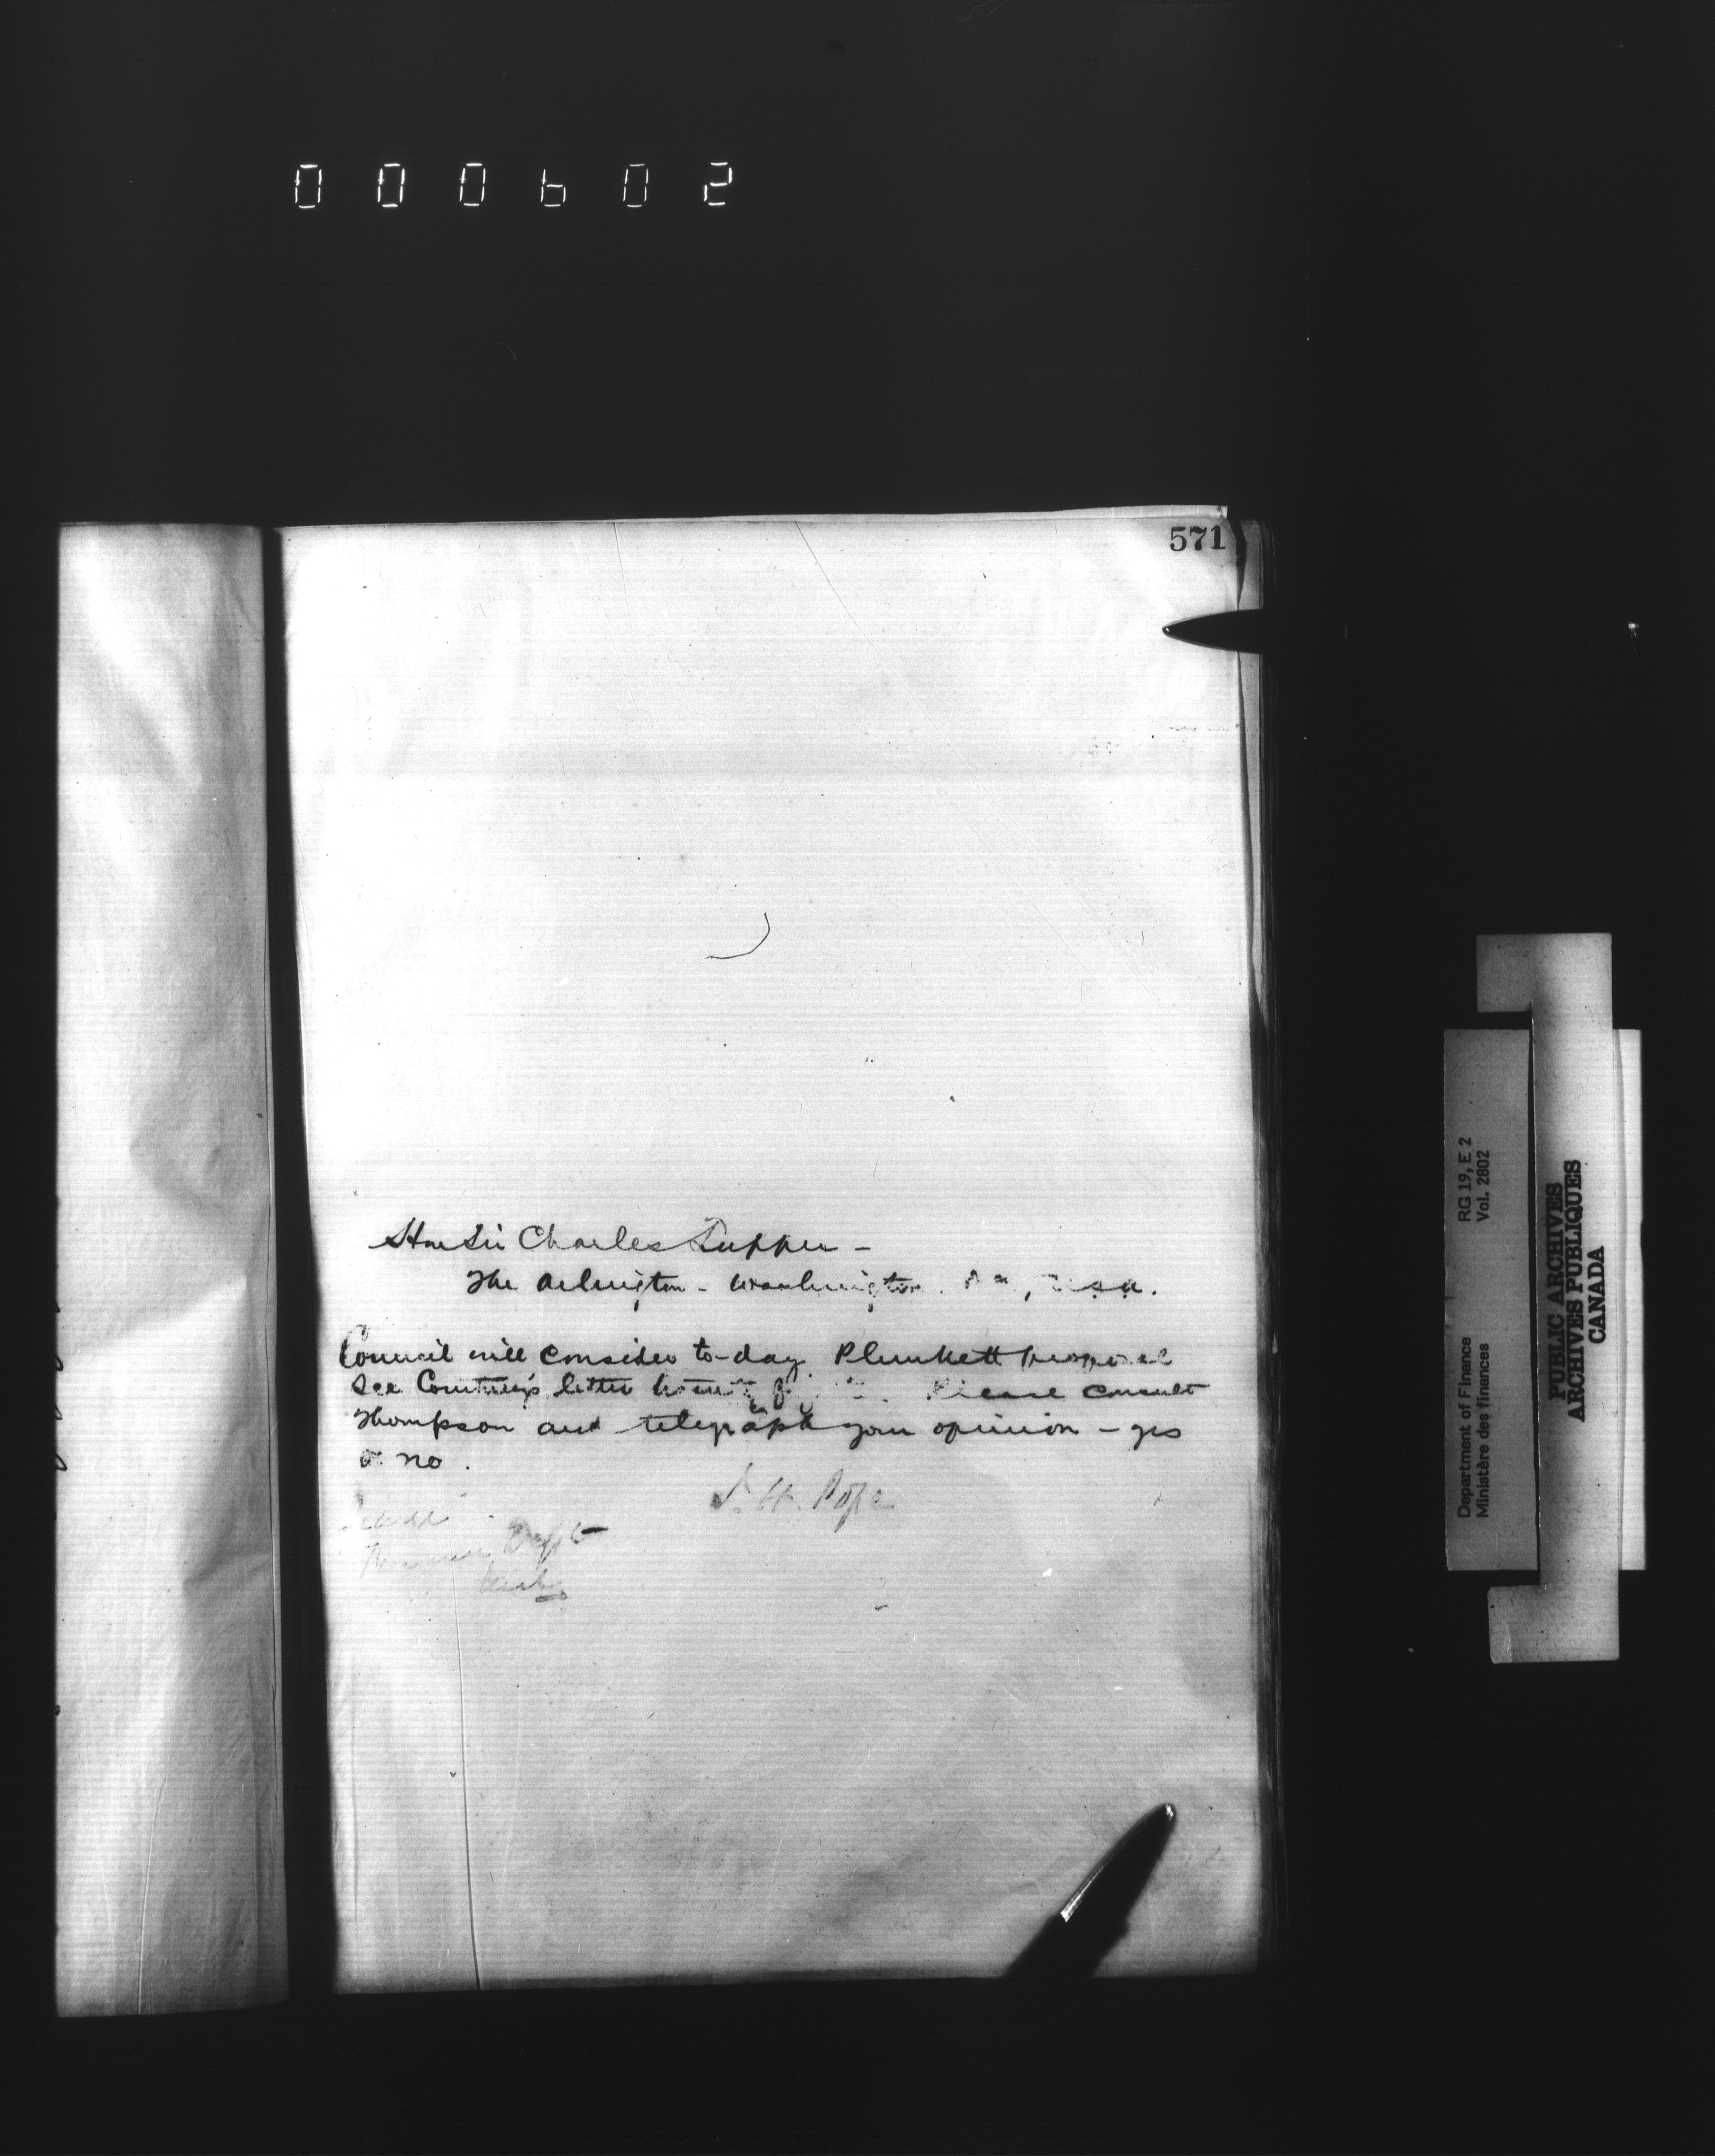 000602
571
Hon Sir Charles Tupper -
The Arlington - Washington. U.S.A.
Council will consider to-day Plunkett proposal
See Courtney's letter Please consult
Thompson and telegraph your opinion - yes
or no.
J. H. Pope
Dept
Department of Finance
Ministère des finances
RG 19, E 2
Vol. 2802
PUBLIC ARCHIVES
ARCHIVES PUBLIQUES
CANADA